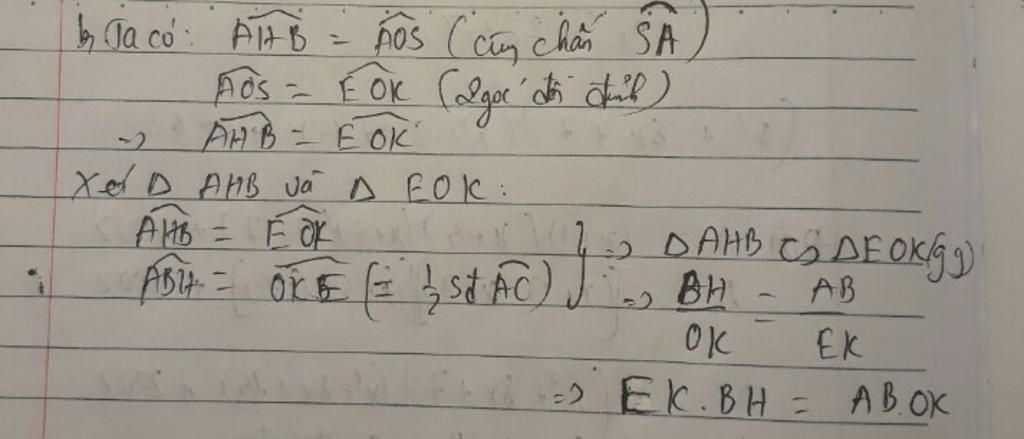 b, Ta có: \widehat{AHB} = \widehat{AOS} (cùng chắn \overset{\frown}{SA})
\widehat{AOS} = \widehat{EOK} (2 góc đối đỉnh)
-> \widehat{AHB} = \widehat{EOK}
Xét Δ AHB và Δ EOK:
\widehat{AHB} = \widehat{EOK} } => Δ AHB ∽ Δ EOK (gg)
\widehat{ABH} = \widehat{OKE} (= 1/2 sđ \overset{\frown}{AC}) => BH/OK = AB/EK
=> EK.BH = AB.OK